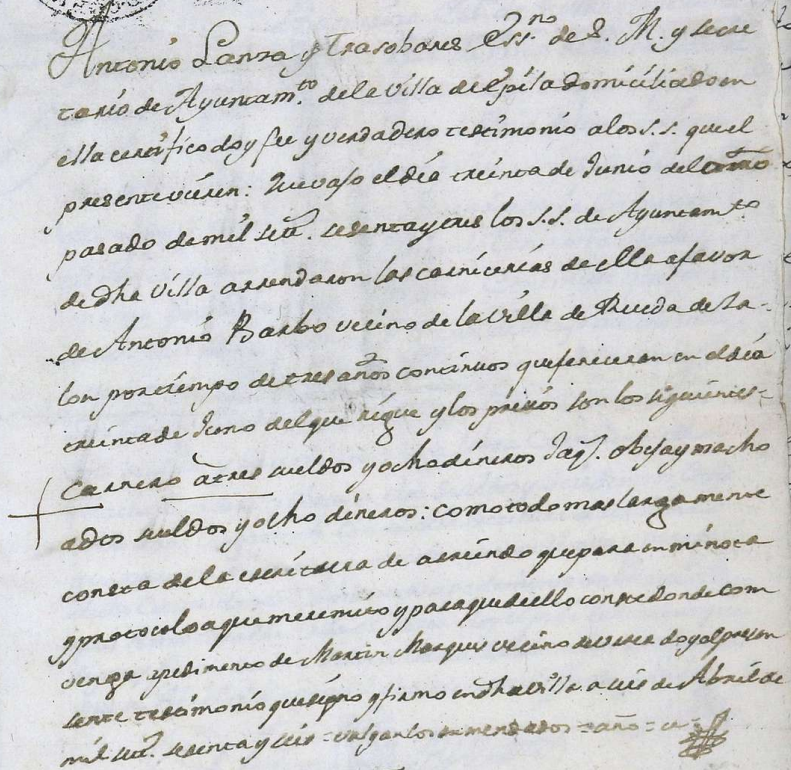 Antonio Lanza y Trasobares Ess.no de S. M. y secre
tario de Ayuntam.to de la villa de Epila domiciliado en
ella certifico doy fee y verdadero testimonio a los s.s. que el
presente vieren: Que vajo el dia treinta de Junio del año
pasado de mil set.s sesenta y tres los s.s. de Ayuntam.to
de dha villa arrendaron las carnicerias de ella a favor
de Antonio Barbo vecino de la villa de Rueda de Xa-
lon por tiempo de tres años continuos que feneceran en el dia
treinta de Juno del que rige y los precios son los siguientes=
Carnero a tres sueldos y ocho dineros Jaq.s obeja y macho
a dos sueldos y ocho dineros: como todo mas largamente
consta de la escritura de arriendo que para en mi nota
y protocolo a que me remito y para que de ello conste donde com
venga a pedimento de Martin Marques vecino de doy el presen
sente testimonio que signo y firmo en dha villa a seis de Abril de
mil set.s sesenta y seis = valgan los enmendados = año =